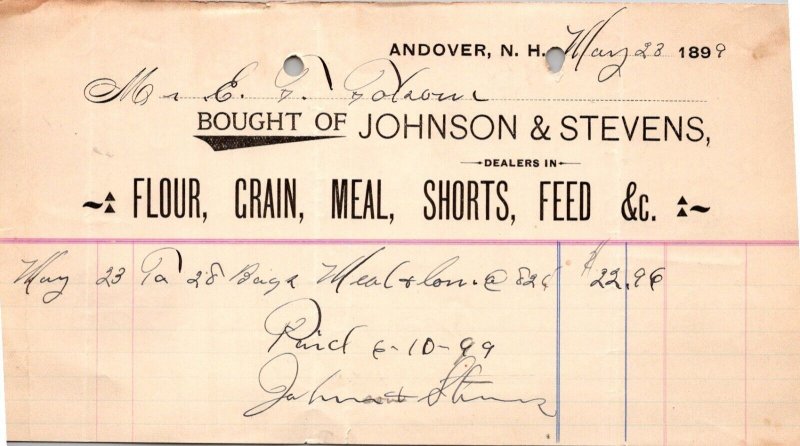 ANDOVER, N. H. May 23 1899
Mr E. F. Folsom
BOUGHT OF JOHNSON & STEVENS,
DEALERS IN
FLOUR, GRAIN, MEAL, SHORTS, FEED &c.
May 23 To 28 Bags Meal & Corn @ 82¢ $22.96
Paid 6-10-99
Johnson & Stevens